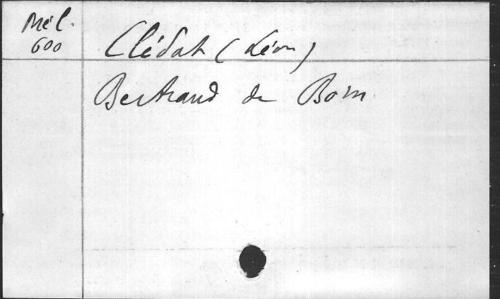 Mél.
600
Clédat (Léon)
Bertrand de Born.